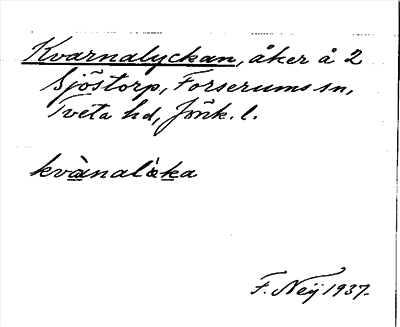 Kvarnalyckan, åker å 2
Sjöstorp, Forserums sn,
Tveta hd, Jönk. l.
kvànalỳka
F. Neij 1937.